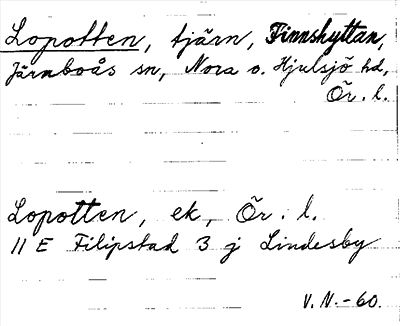 Lopotten, tjärn, Finnshyttan,
Järnboås sn, Nora o. Hjulsjö hd,
Ör. l.
Lopotten, ek, Ör. l.
11 E Filipstad 3 j Lindesby
V. N. -60.